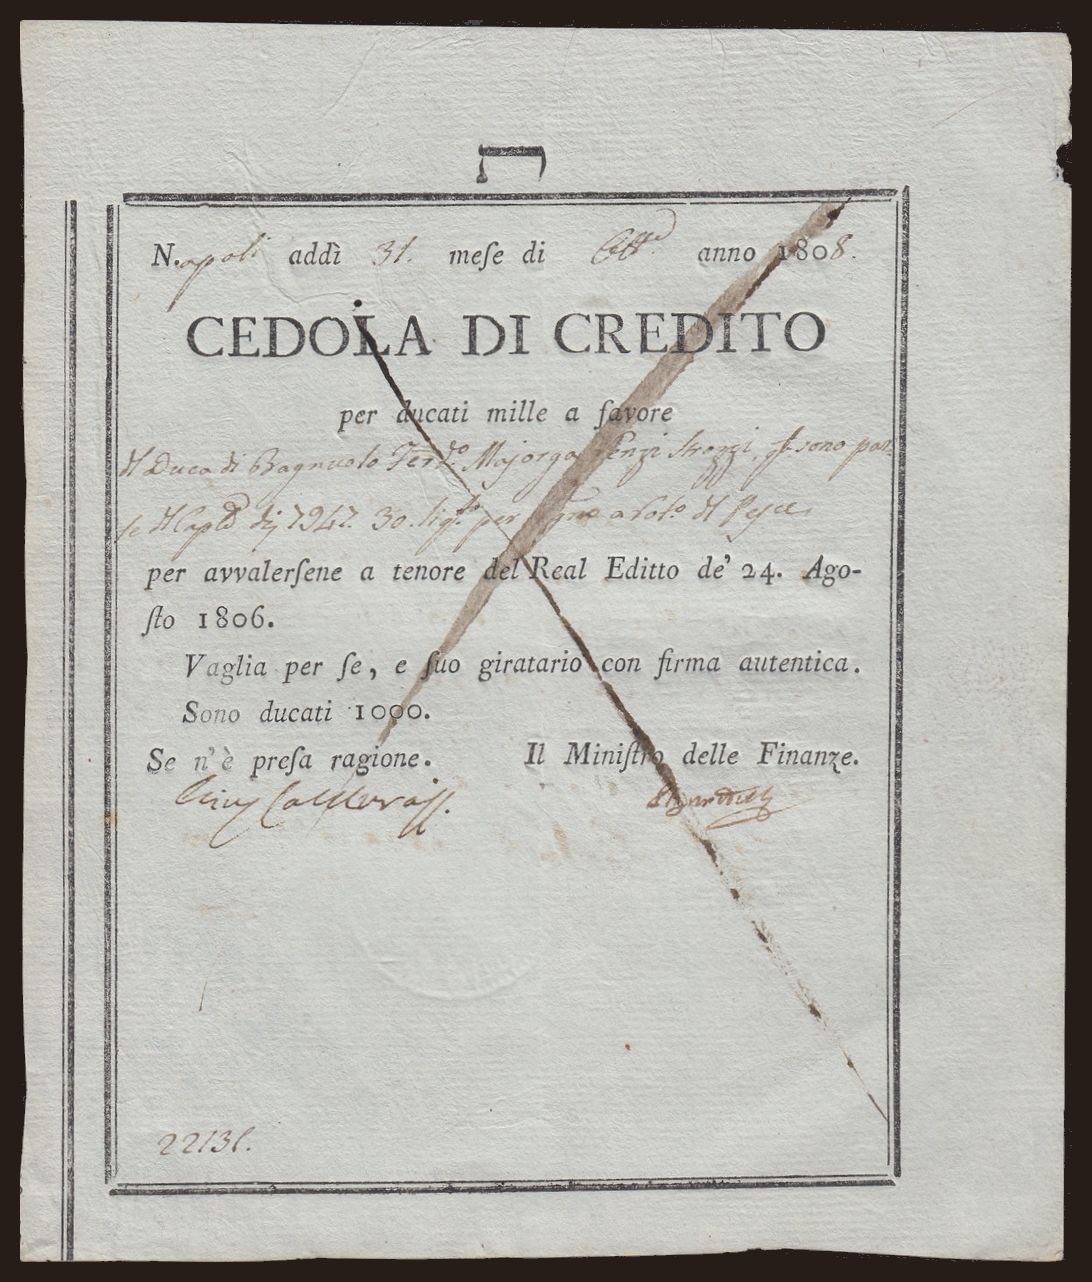 ת
Napoli addì 31. meſe di anno 1808.
CEDOLA DI CREDITO
per ducati mille a favore
Duca di Bagnuolo Ferd.o Majorga Renzi Strozzi, sono par-
per
per avvalerſene a tenore del Real Editto de' 24. Ago-
ſto 1806.
Vaglia per ſe, e ſuo giratario con firma autentica.
Sono ducati 1000.
Se n'è preſa ragione. Il Miniſtro delle Finanze.
22131.